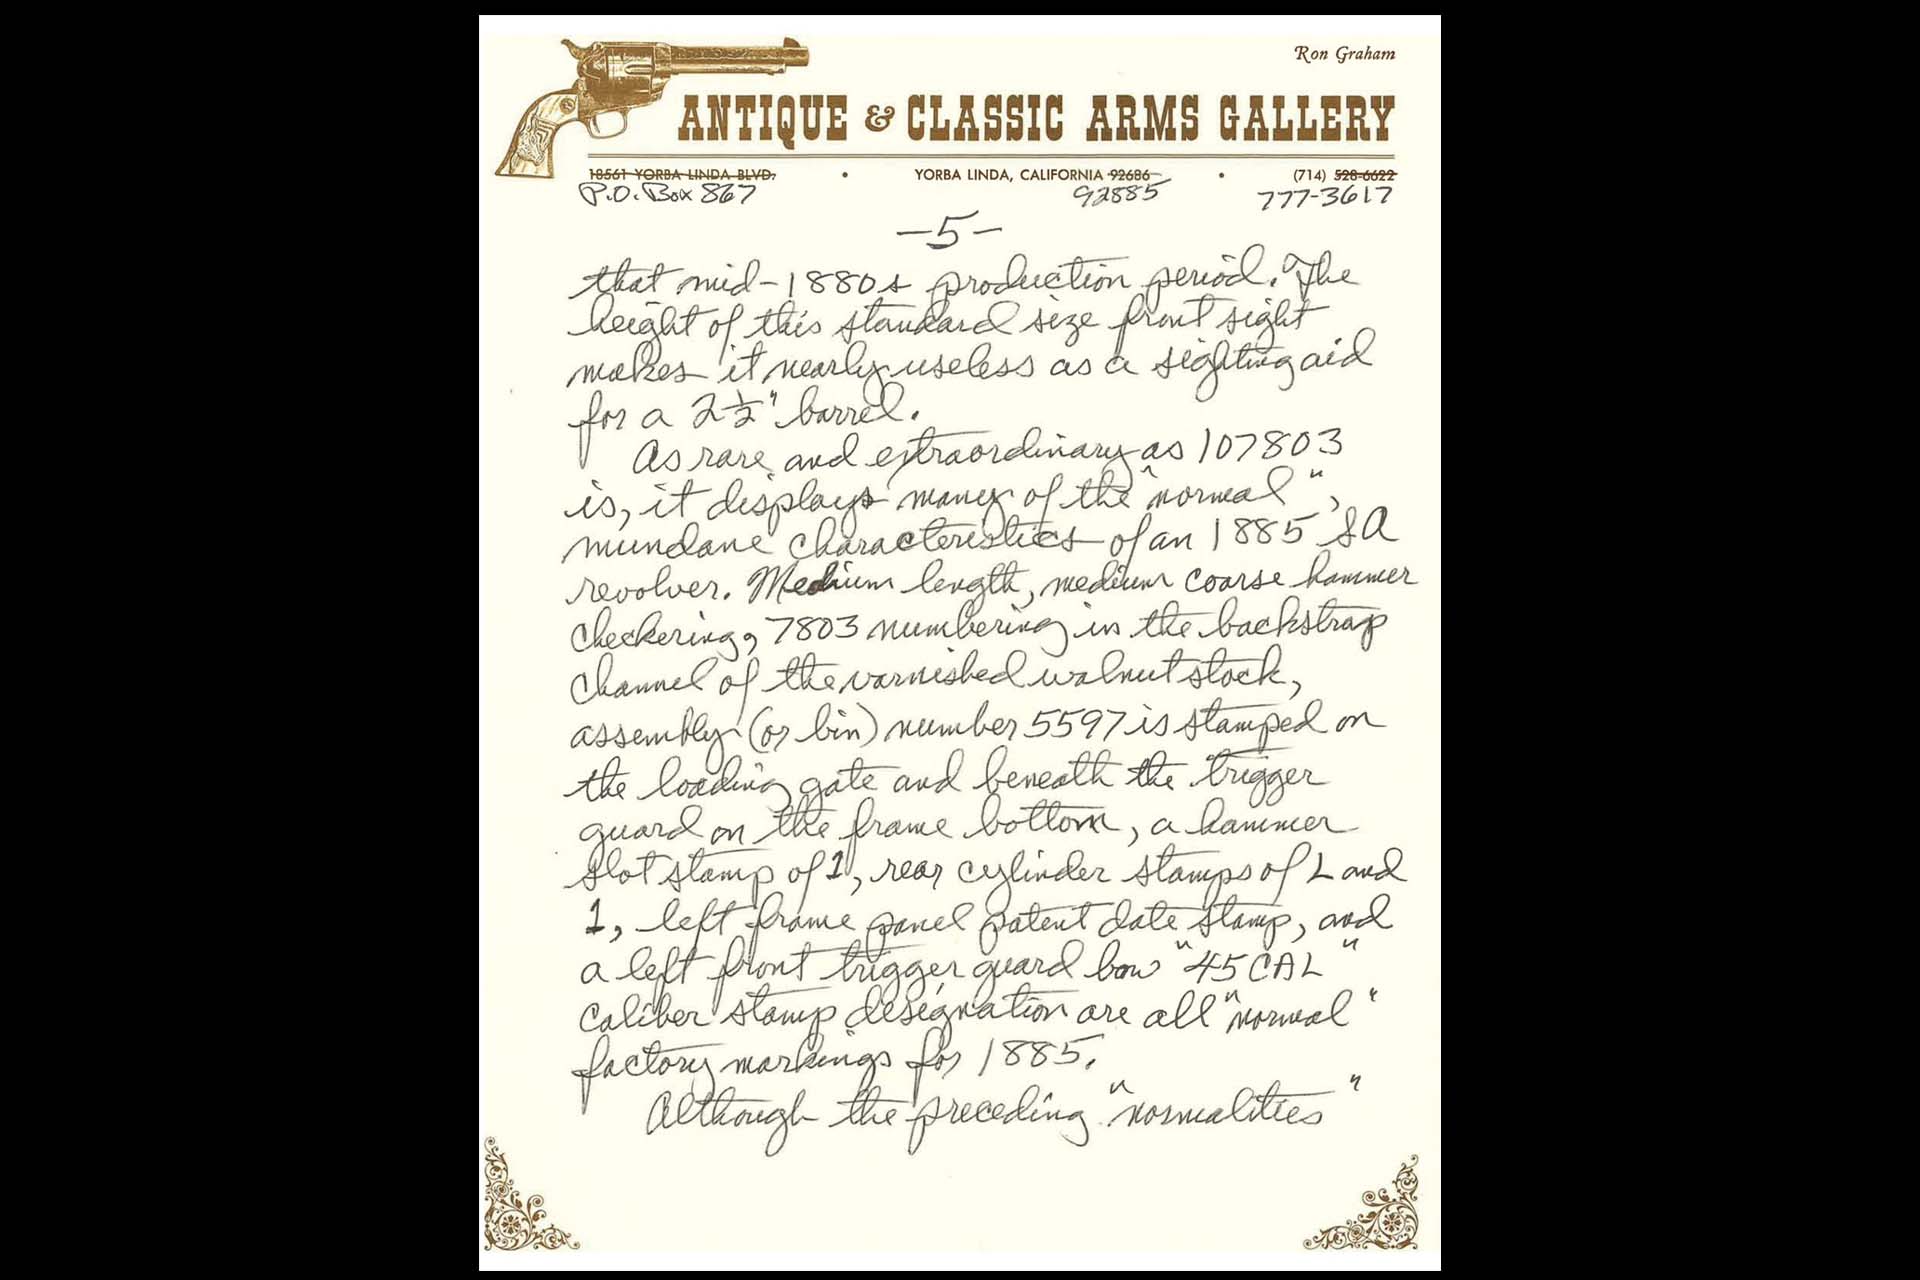 Ron Graham
ANTIQUE & CLASSIC ARMS GALLERY
18561 YORBA LINDA BLVD. • YORBA LINDA, CALIFORNIA 92686 • (714) 528-6622
P.O. Box 867 92885 777-3617
-5-
that mid-1880s production period. The
height of this standard size front sight
makes it nearly useless as a sighting aid
for a 2½" barrel.
As rare and extraordinary as 107803
is, it displays many of the "normal",
mundane characteristics of an 1885 SA
revolver. Medium length, medium coarse hammer
checkering, 7803 numbering in the backstrap
channel of the varnished walnut stock,
assembly (or bin) number 5597 is stamped on
the loading gate and beneath the trigger
guard on the frame bottom, a hammer
slot stamp of 1, rear cylinder stamps of L and
1, left frame panel patent date stamp, and
a left front trigger guard bow "45 CAL"
caliber stamp designation are all "normal"
factory markings for 1885.
Although the preceding "normalities"